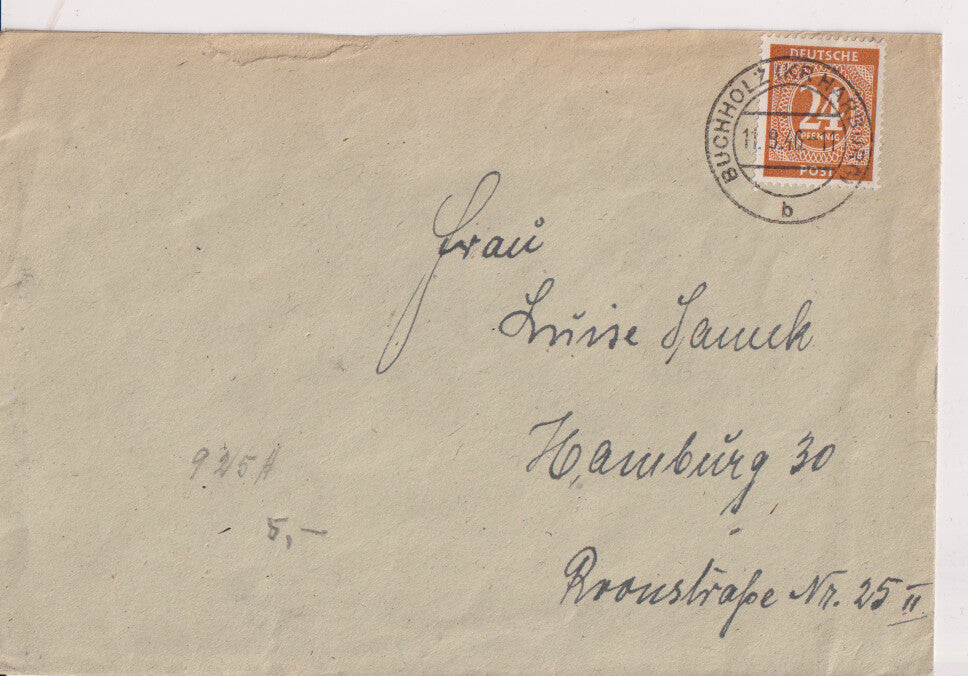 DEUTSCHE
24
PFENNIG
POST
BUCHHOLZ (KR HARBURG)
11.9.46
b
Frau
Luise Jannck
Hamburg 30
Roonstraße Nr. 25 II
925A
5,-